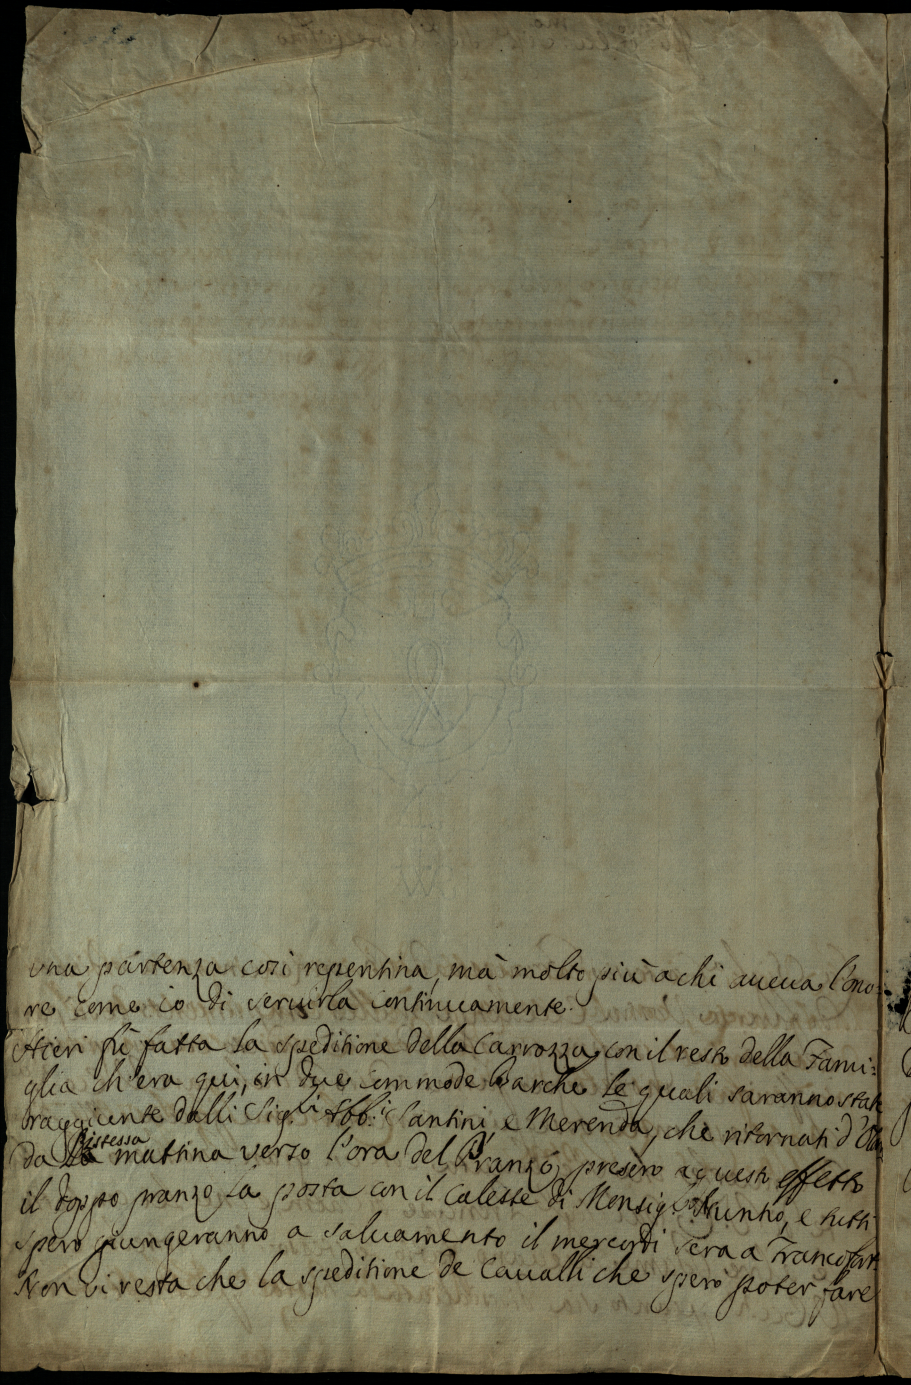 una partenza così repentina, mà molto più a chi aueua l'ono-
re come io di seruirla continuamente.
Hieri fù fatta la speditione della Carrozza con il resto della Fami:
glia ch'era qui, in due commode barche le quali saranno state
raggiunte dalli Sig.ri Abb.ti Santini e Merenda, che ritornati d'Olan
da l'istessa mattina verso l'ora del Pranzo, presero a questo effetto
il doppo pranzo la posta con il Calesse di Monsig.r Nuntio, e tutti
spero giungeranno a saluamento il mercordì sera a Francofort
Non vi resta che la speditione de Caualli che spero poter fare